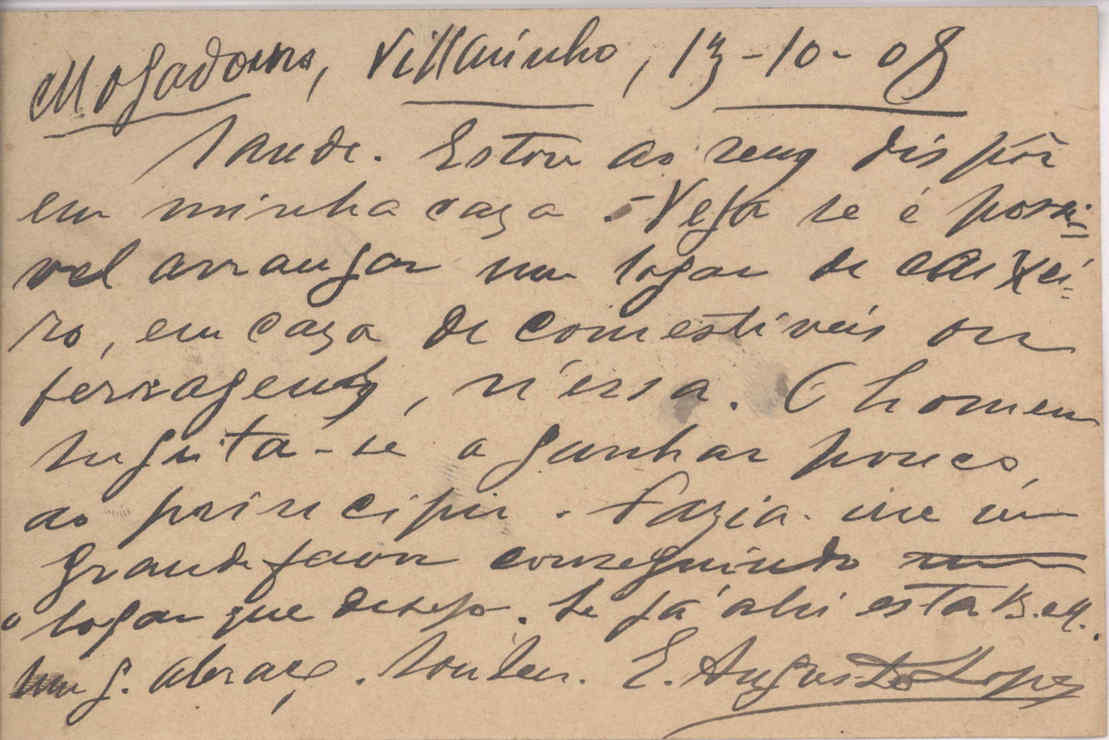 Mogadouro, Villarinho, 13-10-08
Saude. Estou ao seu dispôr
em minha caza. - Veja se é possi-
vel arranjar um logar de caixei-
ro, em caza de comestiveis ou
ferragens, n'essa. O homem
sugeita-se a ganhar pouco
ao principio. Fazia-me um
grande favor conseguindo
o logar que desejo. Se já ahi está B. M.
um g. abraço. E. Augusto Lopes